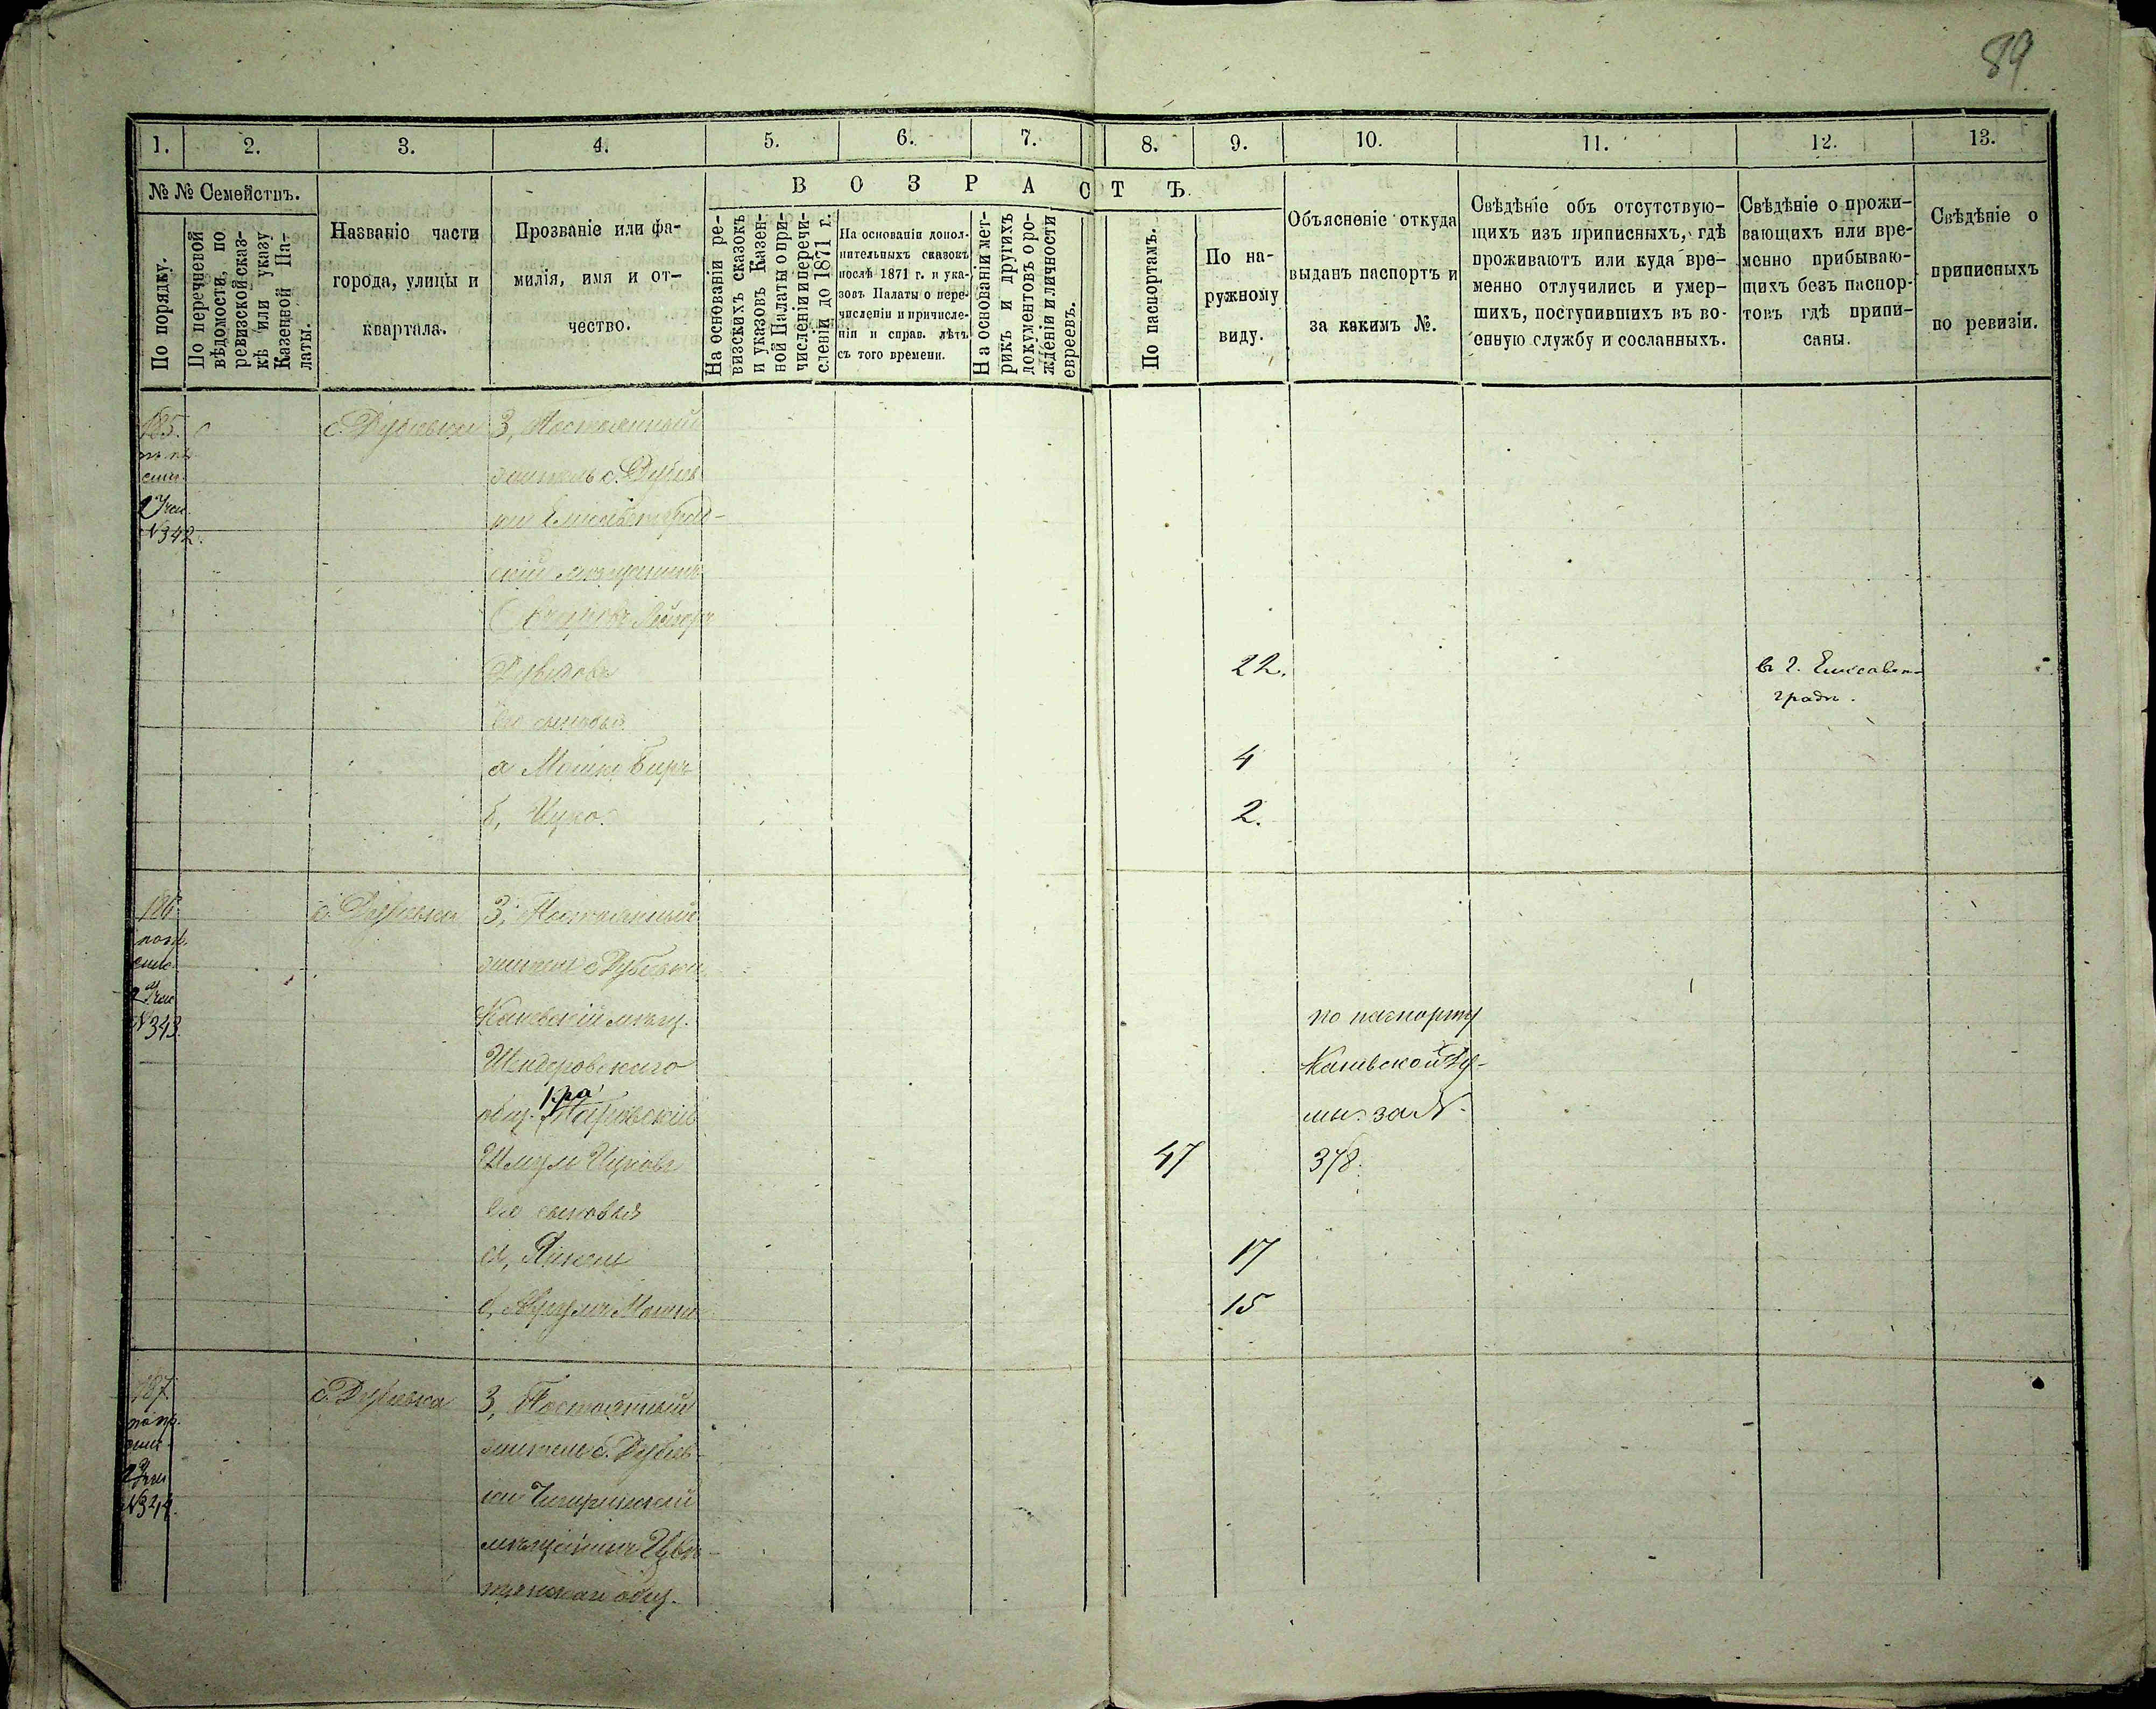 89
1. 2. 3. 4. 5. 6. 7. 8. 9. 10. 11. 12. 13.
№ № Семействъ.
По порядку.
По перечневой
вѣдомости, по
ревизской сказ-
кѣ или указу
Казенной Па-
латы.
Названіе части
города, улицы и
квартала.
Прозваніе или фа-
милія, имя и от-
чество.
ВОЗРАСТЪ
На основаніи ре-
визскихъ сказокъ
и указовъ Казен-
ной Палаты о при-
численіи и перечи-
сленіи до 1871 г.
На основаніи допол-
нительныхъ сказокъ
послѣ 1871 г. и ука-
зовъ Палаты о пере-
численіи и причисле-
ніи и справ. лѣтъ
съ того времени.
На основаніи мет-
рикъ и другихъ
документовъ о ро-
жденіи и личности
евреевъ.
По паспортамъ.
По на-
ружному
виду.
Объясненіе откуда
выданъ паспортъ и
за какимъ №.
Свѣдѣніе объ отсутствую-
щихъ изъ приписныхъ, гдѣ
проживаютъ или куда вре-
менно отлучились и умер-
шихъ, поступившихъ въ во-
енную службу и сосланныхъ.
Свѣдѣніе о прожи-
вающихъ или вре-
менно прибываю-
щихъ безъ паспор-
товъ гдѣ припи-
саны.
Свѣдѣніе о
приписныхъ
по ревизіи.
185.
№342.
с. Дубіевка
3, Постоянный
житель с. Дубіев
ки Елисаветград-
скій мѣщанинъ
Давидовъ 22. въ г. Елисавет-
градѣ.
Его сыновья
а Мошко Беръ 4
б, Ицко. 2.
186
попр.
спис.
№343.
с. Дубіевка
3, Постоянный
житель с Дубіевки
Каневскій мѣщ. по паспорту
Шендеровскаго Каневской Ду-
общ. мы за №.
Шмуль Ицковъ 47 378.
Его сыновья
а, 17
б, Аврумъ Мошко 15
187.
попр.
спис.
№344.
с. Дубіевка
3, Постоянный
житель с. Дубіев-
ки Чигиринскій
мѣщанинъ
общ.